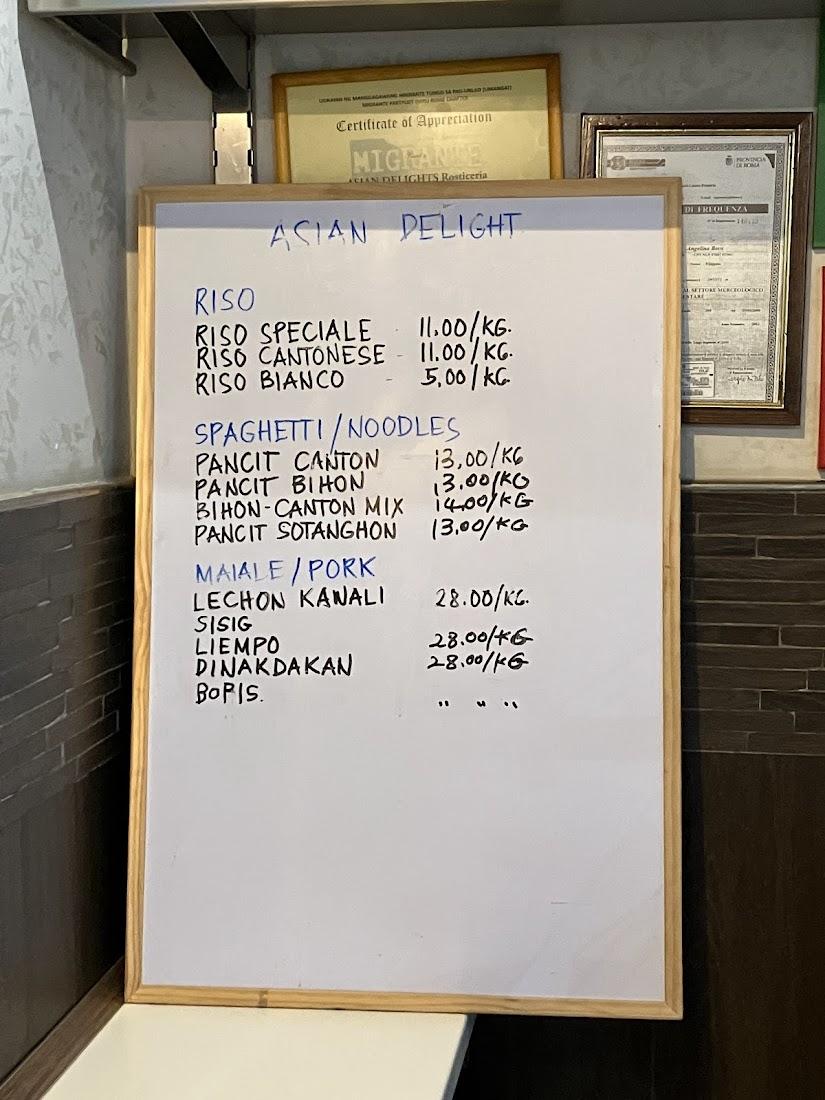 UGNAYAN NG MANGGAGAWANG MIGRANTE TUNGO SA PAG-UNLAD (UMANGAT)
Certificate of Appreciation
MIGRANTE
ASIAN DELIGHTS Rosticeria
PROVINCIA
DI ROMA
DI FREQUENZA
ASIAN DELIGHT
RISO
RISO SPECIALE - 11.00/KG.
RISO CANTONESE - 11.00/KG.
RISO BIANCO - 5,00/KG.
SPAGHETTI/NOODLES
PANCIT CANTON 13,00/KG
PANCIT BIHON 13.00/KG
BIHON-CANTON MIX 14.00/KG
PANCIT SOTANGHON 13.00/KG
MAIALE/PORK
LECHON KAWALI 28.00/KG.
SISIG
LIEMPO 28.00/KG
DINAKDAKAN 28.00/KG
BOPIS. " " "